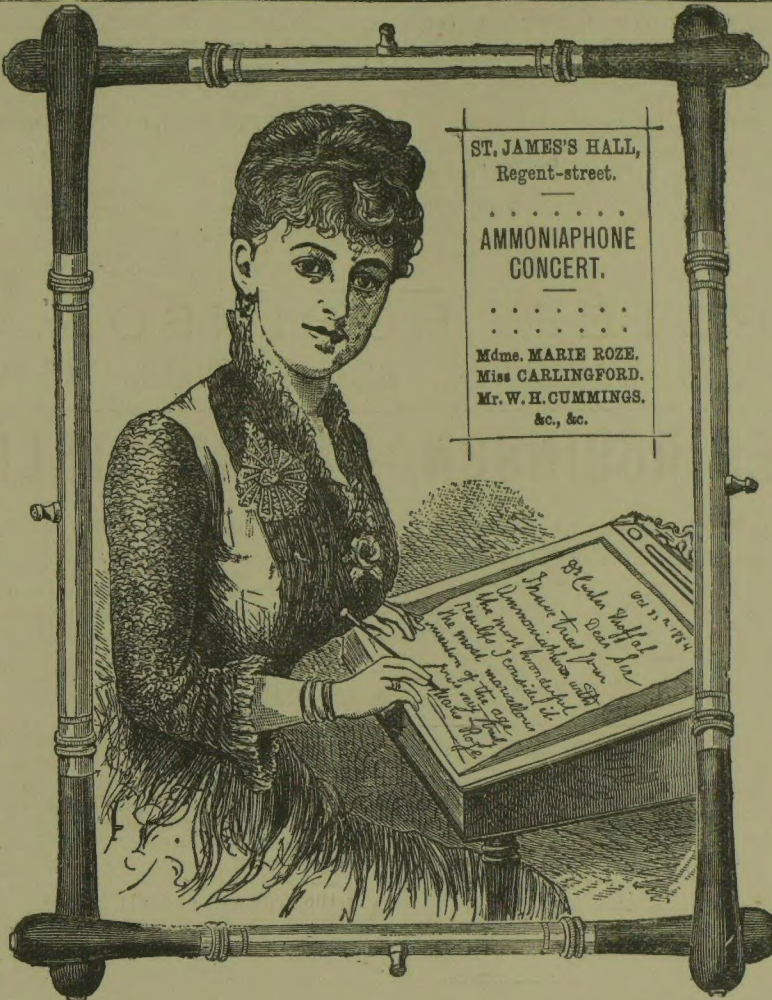 ST. JAMES'S HALL,
Regent-street.
AMMONIAPHONE
CONCERT.
Mdme. MARIE ROZE.
Miss CARLINGFORD.
Mr. W. H. CUMMINGS.
&c., &c.
Oct 23rd 1884
Dr Carter Moffat
Dear Sir
I have tried your
Ammoniaphone with
the most wonderful
results I consider it
the most marvellous
invention of the age
yrs very truly
Marie Roze